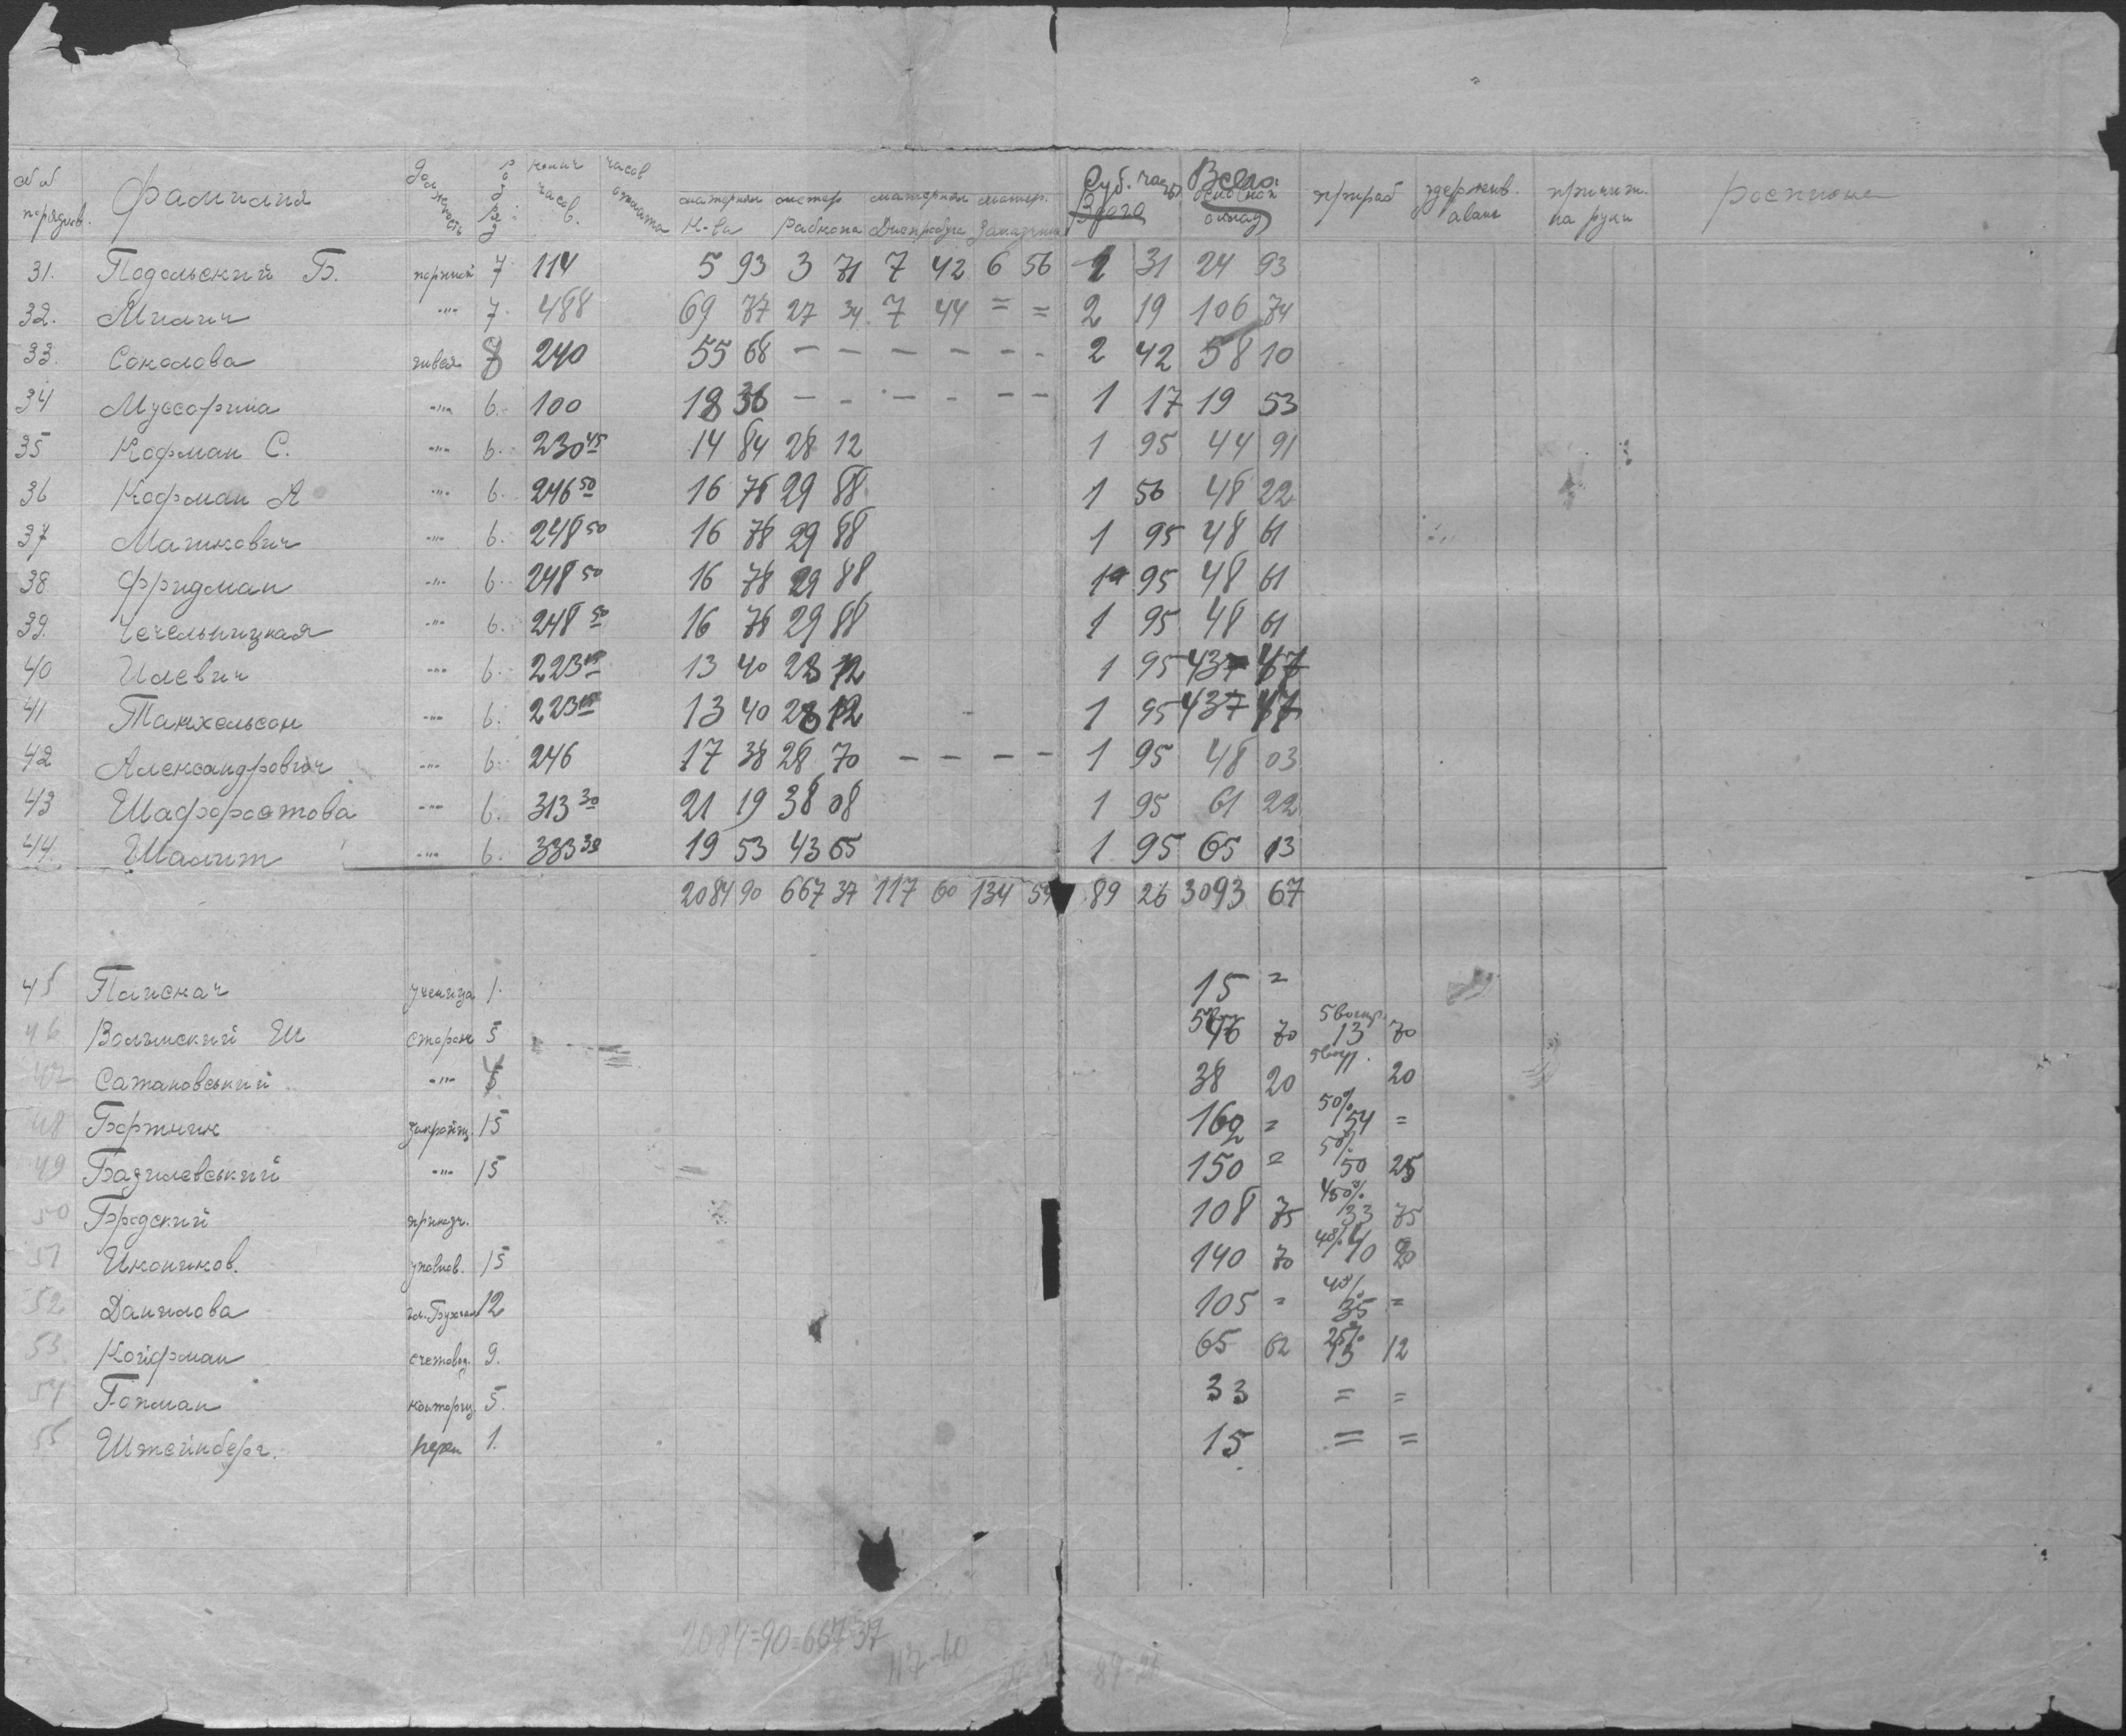 №№ порядков. Фамилия должность разряд колич. часов. часов материал К-ва матер Рабкопа материал матер. Заказчика Суб. часы Всего Всего основной оклад прираб удержив. аванс причит. на руки росписка
31. Подольский Б. 7 114 5 93 3 71 7 42 6 56 1 31 24 93
32. Милич -"- 7. 488 69 77 27 34 7 44 = = 2 19 106 74
33. Соколова швея 8 240 55 68 - - - - - - 2 42 58 10
34 Муссорина -"- 6. 100 18 36 - - - - - - 1 17 19 53
35 Кофман С. -"- 6. 230 45 14 84 28 12 1 95 44 91
36 Кофман А -"- 6. 246 50 16 78 29 88 1 56 48 22
37 Машкович -"- 6. 248 50 16 78 29 88 1 95 48 61
38 Фридман -"- 6. 248 50 16 78 29 88 1 95 48 61
39. Чечельницкая -"- 6. 248 50 16 78 29 88 1 95 48 61
40 Илевич -"- 6. 223 13 40 28 12 1 95 43 47
41 Танхельсон -"- 6. 223 13 40 28 12 1 95 43 47
42 Александрович -"- 6. 246 17 38 28 70 - - - - 1 95 48 03
43 Шафоростова -"- 6. 313 30 21 19 38 08 1 95 61 22
44. Шалит -"- 6. 333 30 19 53 43 65 1 95 65 13
2084 90 667 37 117 60 134 54 89 26 3093 67
45 Паискач ученица 1. 15 =
46 Волинский Ш сторож 5 46 70 13 70
47 Сатановський -"- 38 20 11 20
48 Бортник закройщ. 15 162 = 50% 54 =
49 Базилевський -"- 15 150 = 50% 50 25
50 Бродский приказч. 108 75 33 75
51 Иконников. 15 140 70 40% 40 20
52 Данилова гл. Бухгал 12 105 = 40% 35 =
53 Койфман счетовод. 9. 65 62 25% 13 12
54 Гопман конторщ. 5. 33 = =
55 Штейнберг. 1. 15 = =
2084=90=667=37
117-60
89-26